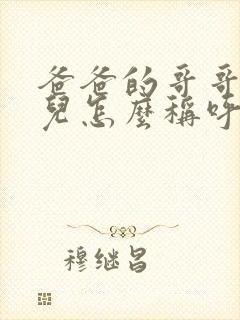 爸爸的哥哥
兒怎麼稱呼
穆继昌